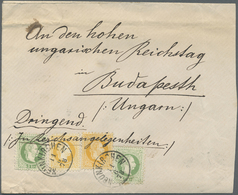 An den hohen
ungarischen Reichstag
in
Budapesth
(Ungarn)
Dringend
(In Reichsangelegenheiten)